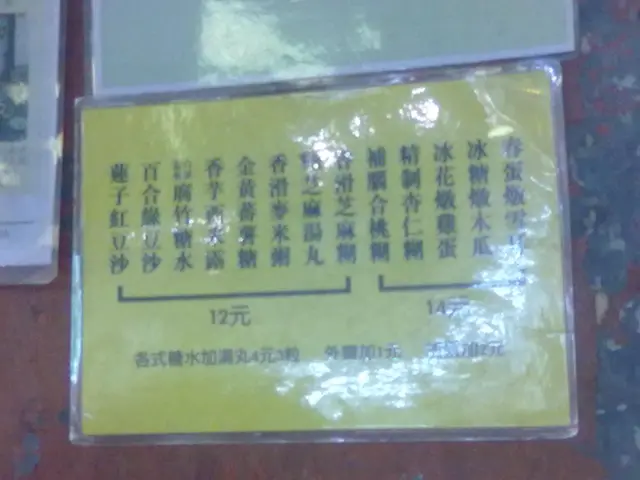 春蛋燉雪耳
冰糖燉木瓜
冰花燉雞蛋
精制杏仁糊
補腦合桃糊
香滑芝麻糊
芝麻湯丸
香滑麥米粥
金黃蕃薯糖
香芋西米露
腐竹糖水
百合綠豆沙
蓮子紅豆沙
12元
14元
各式糖水加湯丸4元3粒
外賣加1元
加2元